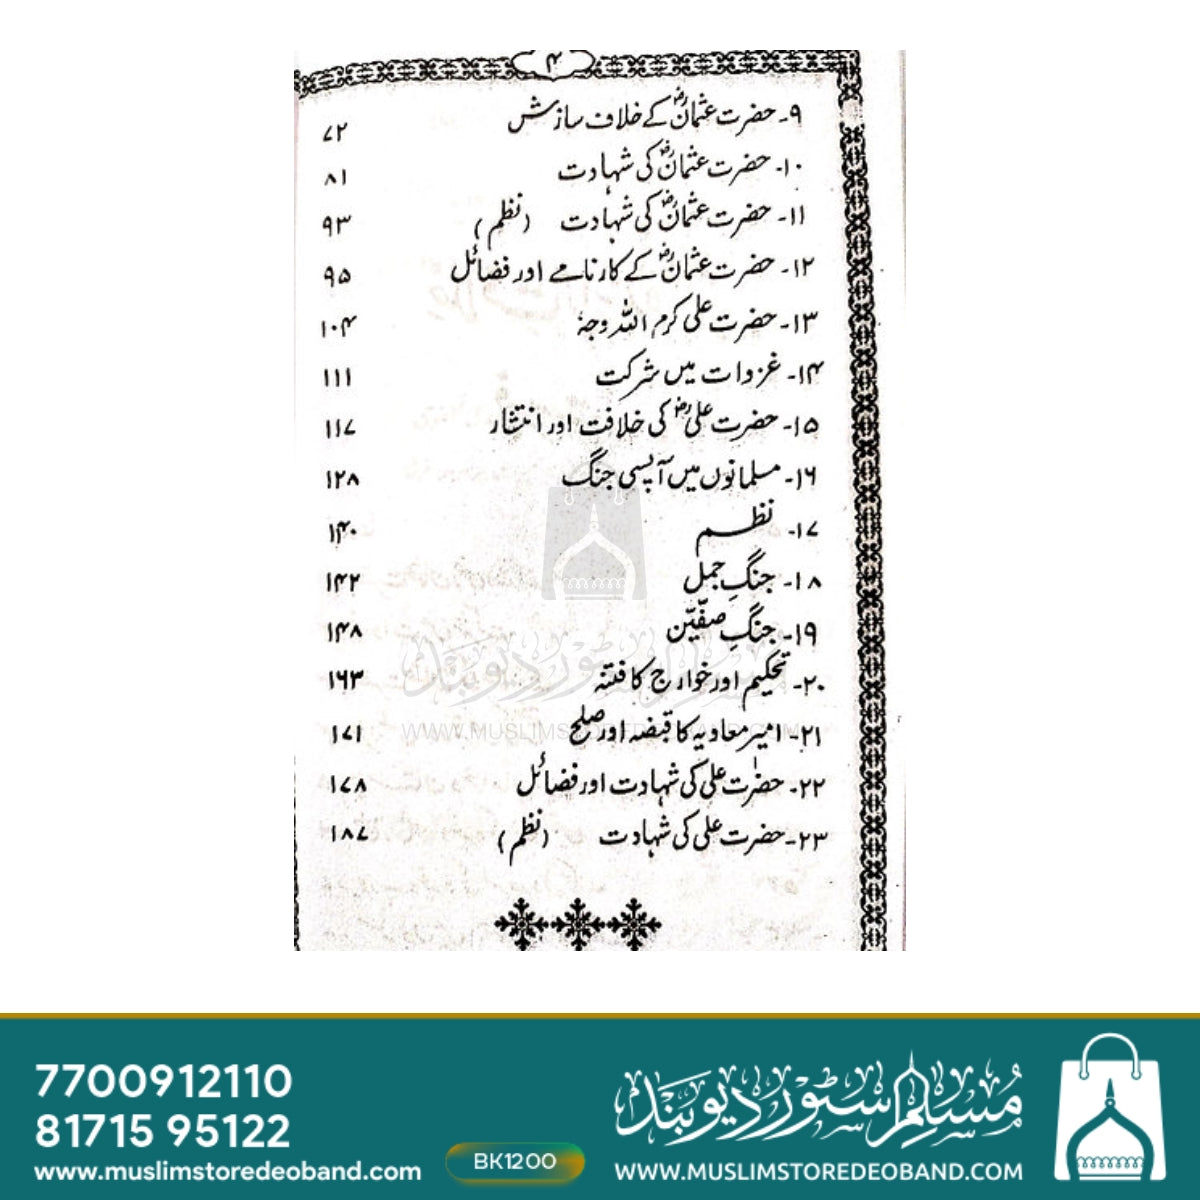 ۴
۹۔ حضرت عثمانؓ کے خلاف سازش ۷۲
۱۰۔ حضرت عثمانؓ کی شہادت ۸۱
۱۱۔ حضرت عثمانؓ کی شہادت (نظم) ۹۳
۱۲۔ حضرت عثمانؓ کے کارنامے اور فضائل ۹۵
۱۳۔ حضرت علی کرم اللہ وجہہٗ ۱۰۴
۱۴۔ غزوات میں شرکت ۱۱۱
۱۵۔ حضرت علیؓ کی خلافت اور انتشار ۱۱۷
۱۶۔ مسلمانوں میں آپسی جنگ ۱۲۸
۱۷۔ نظم ۱۴۰
۱۸۔ جنگِ جمل ۱۴۲
۱۹۔ جنگِ صفّین ۱۴۸
۲۰۔ تحکیم اور خوارج کا فتنہ ۱۶۳
۲۱۔ امیر معاویہ کا قبضہ اور صلح ۱۷۱
۲۲۔ حضرت علی کی شہادت اور فضائل ۱۷۸
۲۳۔ حضرت علی کی شہادت (نظم) ۱۸۷
مسلم سٹور دیوبند
WWW.MUSLIMSTOREDEOBAND.COM
7700912110
81715 95122
www.muslimstoredeoband.com
BK1200
مسلم سٹور دیوبند
WWW.MUSLIMSTOREDEOBAND.COM